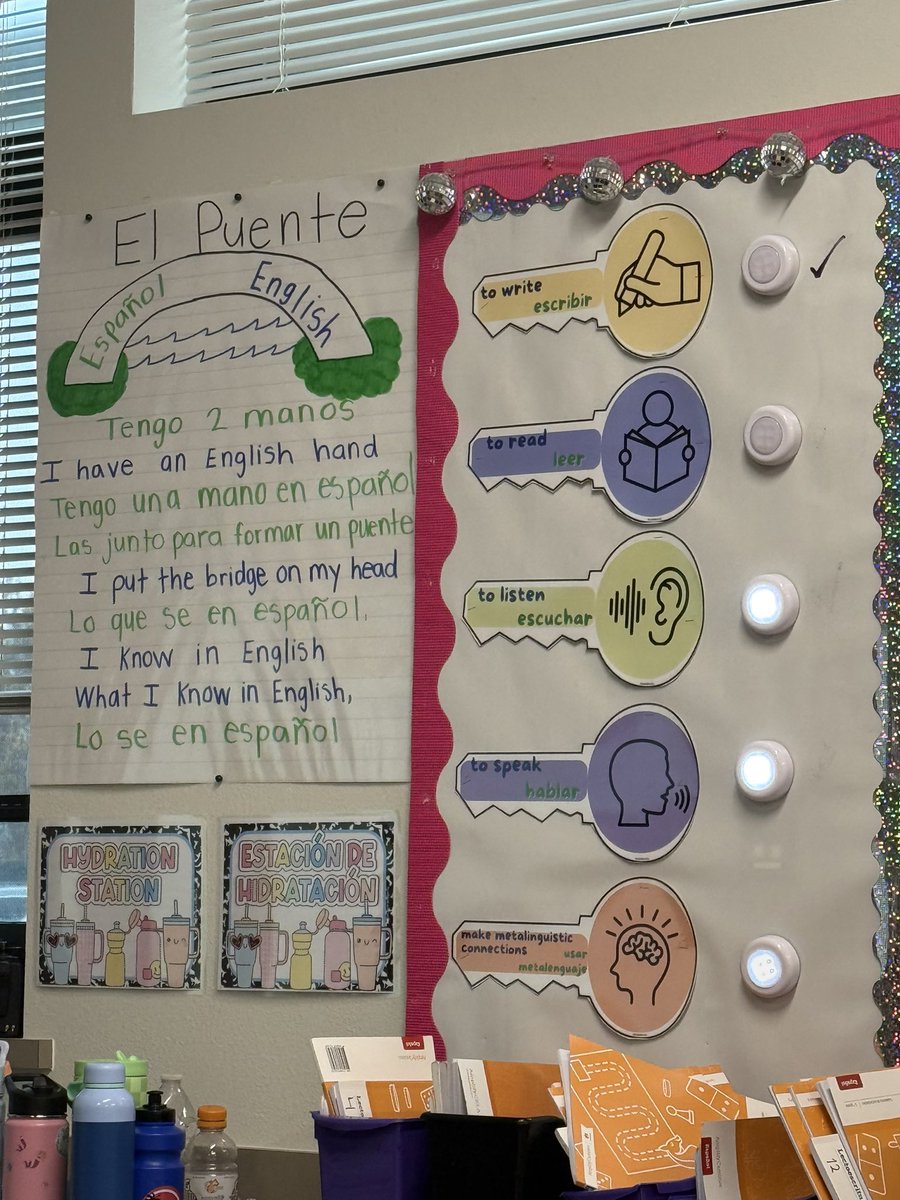 El Puente
Español
English
Tengo 2 manos
I have an English hand
Tengo una mano en español
Las junto para formar un puente
I put the bridge on my head
Lo que se en español,
I know in English
What I know in English,
Lo se en español
HYDRATION
STATION
ESTACIÓN DE
HIDRATACIÓN
to write
escribir
✓
to read
leer
to listen
escuchar
to speak
hablar
make metalinguistic
connections
usar
metalenguaje
12